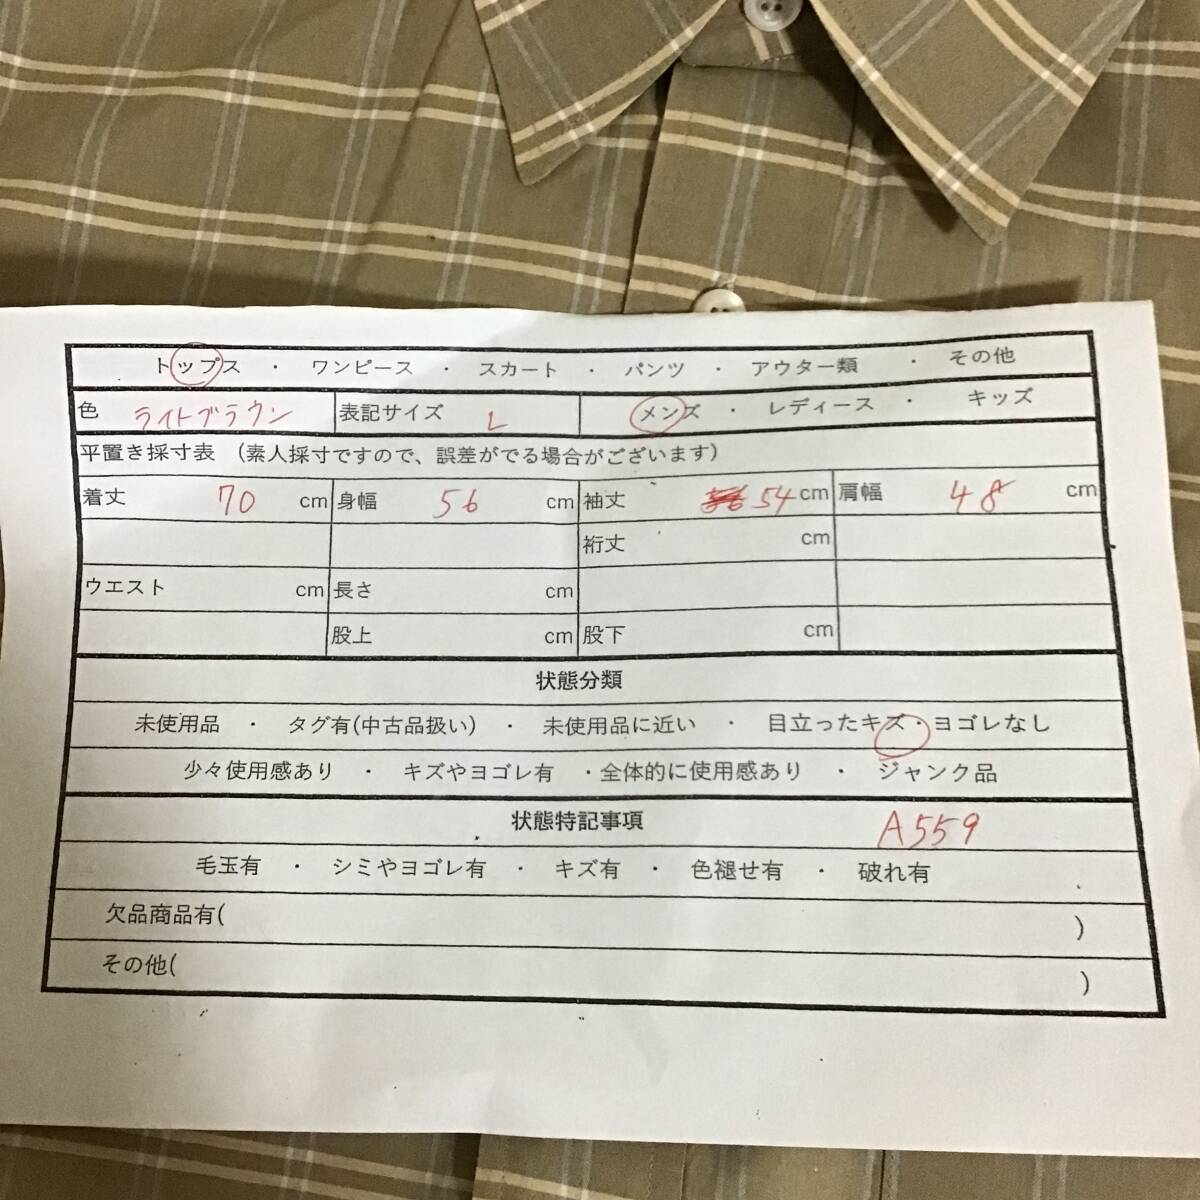 トップス ・ ワンピース ・ スカート ・ パンツ ・ アウター類 ・ その他
色 ライトブラウン 表記サイズ L メンズ ・ レディース ・ キッズ
平置き採寸表 （素人採寸ですので、誤差がでる場合がございます）
着丈 70 cm 身幅 56 cm 袖丈 54 cm 肩幅 48 cm
裄丈 cm
ウエスト cm 長さ cm
股上 cm 股下 cm
状態分類
未使用品 ・ タグ有(中古品扱い) ・ 未使用品に近い ・ 目立ったキズ・ヨゴレなし
少々使用感あり ・ キズやヨゴレ有 ・全体的に使用感あり ・ ジャンク品
状態特記事項 A559
毛玉有 ・ シミやヨゴレ有 ・ キズ有 ・ 色褪せ有 ・ 破れ有
欠品商品有( )
その他( )